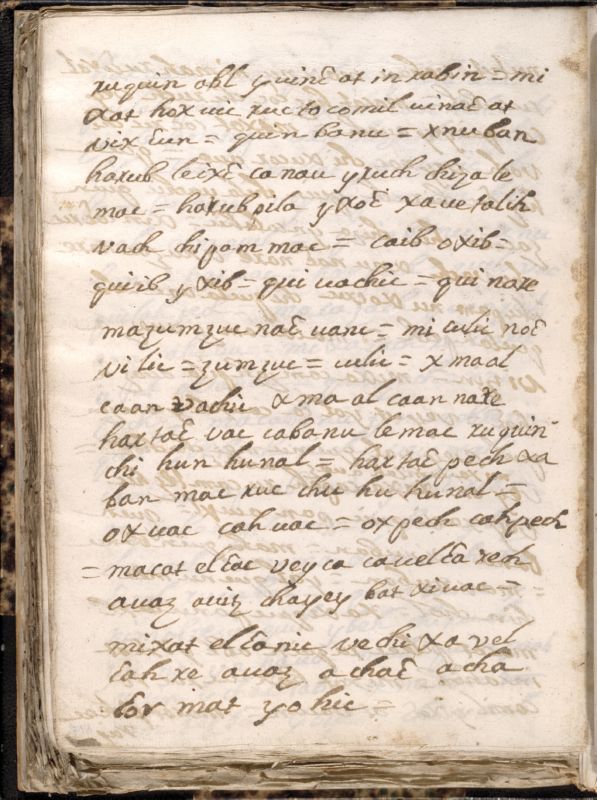 ruquin abl yuinɛ at in rabin = mi
xat hox uic ruc to comil uinaɛ at
vix ɛun = quin banu = xnuban
harub leixɛ canau yruch chiza le
mac = harub pila yxoɛ xa ue talih
vach chipam mac = caib oxib =
quiib yxib = qui uachic = qui naxe
mazumzuc naɛ uanc = mi culic noɛ
vi lic = zumzuc = culic = x maal
caan vachic x ma al caan naxe
hartaɛ vac cabanu le mac ruquin
chi hun hunal = hartaɛ pech xa
ban mac ruc chic hu hunal =
oxuac cahuac = oxpech cahpech
= macat elɛac veyca cauelɛa xeh
auaz auitz chayey bat xiuac =
mixat elɛanic vechi xa vel
ɛah xe auaz achaɛ acha
bov mat yohic =